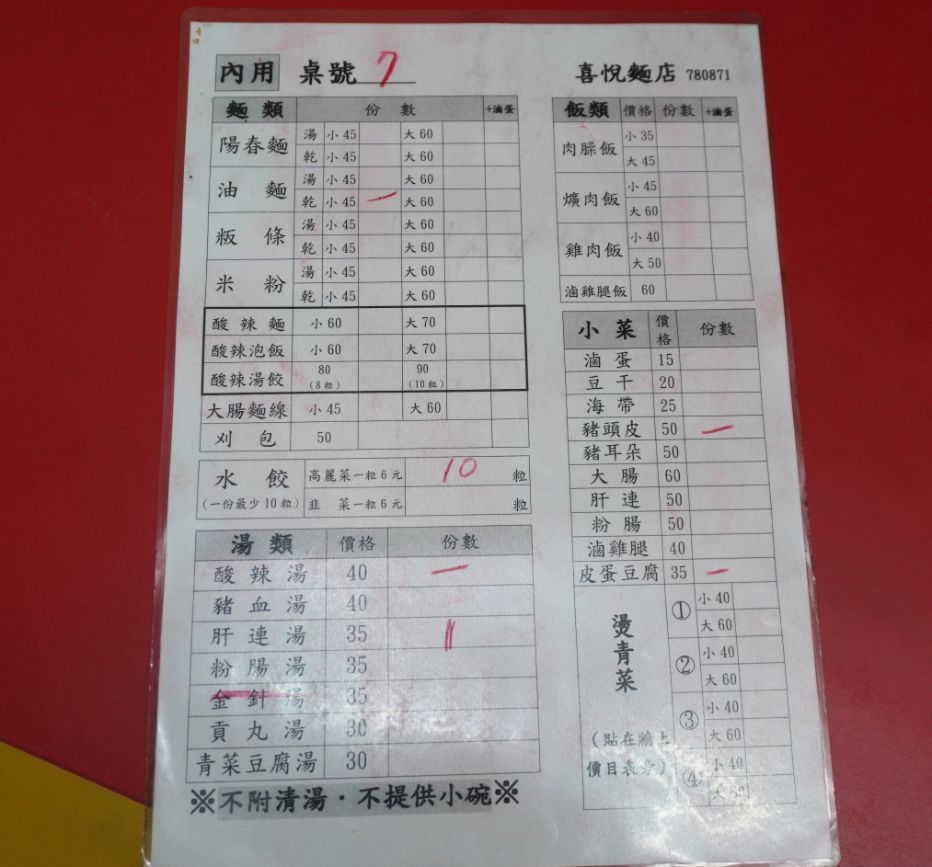 內用 桌號 7 喜悅麵店 780871
麵類 份數 +滷蛋
陽春麵 湯 小 45 大 60
乾 小 45 大 60
油麵 湯 小 45 大 60
乾 小 45 一 大 60
粄條 湯 小 45 大 60
乾 小 45 大 60
米粉 湯 小 45 大 60
乾 小 45 大 60
酸辣麵 小 60 大 70
酸辣泡飯 小 60 大 70
酸辣湯餃 80 (8粒) 90 (10粒)
大腸麵線 小 45 大 60
刈包 50
水餃 (一份最少10粒) 高麗菜一粒6元 10 粒
韭菜一粒6元 粒
湯類 價格 份數
酸辣湯 40 一
豬血湯 40
肝連湯 35 ||
粉腸湯 35
金針湯 35
貢丸湯 30
青菜豆腐湯 30
※不附清湯·不提供小碗※
飯類 價格 份數 +滷蛋
肉臊飯 小 35
大 45
爌肉飯 小 45
大 60
雞肉飯 小 40
大 50
滷雞腿飯 60
小菜 價格 份數
滷蛋 15
豆干 20
海帶 25
豬頭皮 50 一
豬耳朵 50
大腸 60
肝連 50
粉腸 50
滷雞腿 40
皮蛋豆腐 35 一
燙青菜
(貼在牆上
價目表旁)
① 小 40
大 60
② 小 40
大 60
③ 小 40
大 60
④ 小 40
大 60